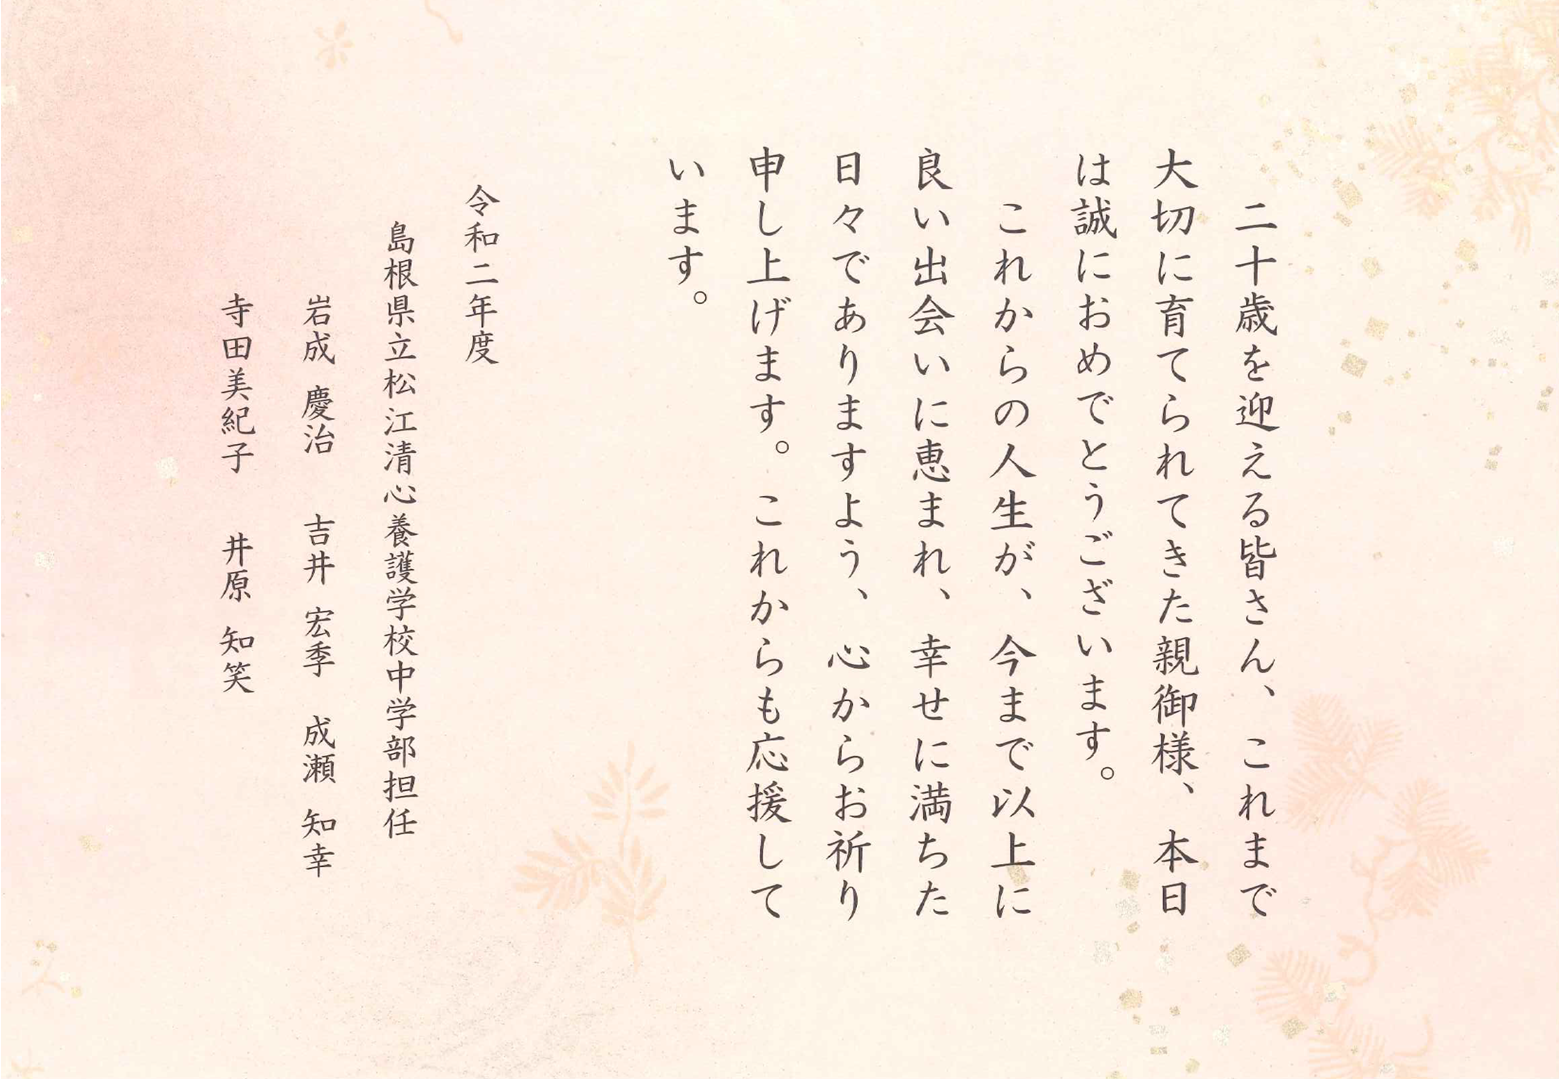 二十歳を迎える皆さん、これまで
大切に育てられてきた親御様、本日
は誠におめでとうございます。
これからの人生が、今まで以上に
良い出会いに恵まれ、幸せに満ちた
日々でありますよう、心からお祈り
申し上げます。これからも応援して
います。
令和二年度
島根県立松江清心養護学校中学部担任
岩成 慶治 吉井 宏季 成瀬 知幸
寺田美紀子 井原 知笑